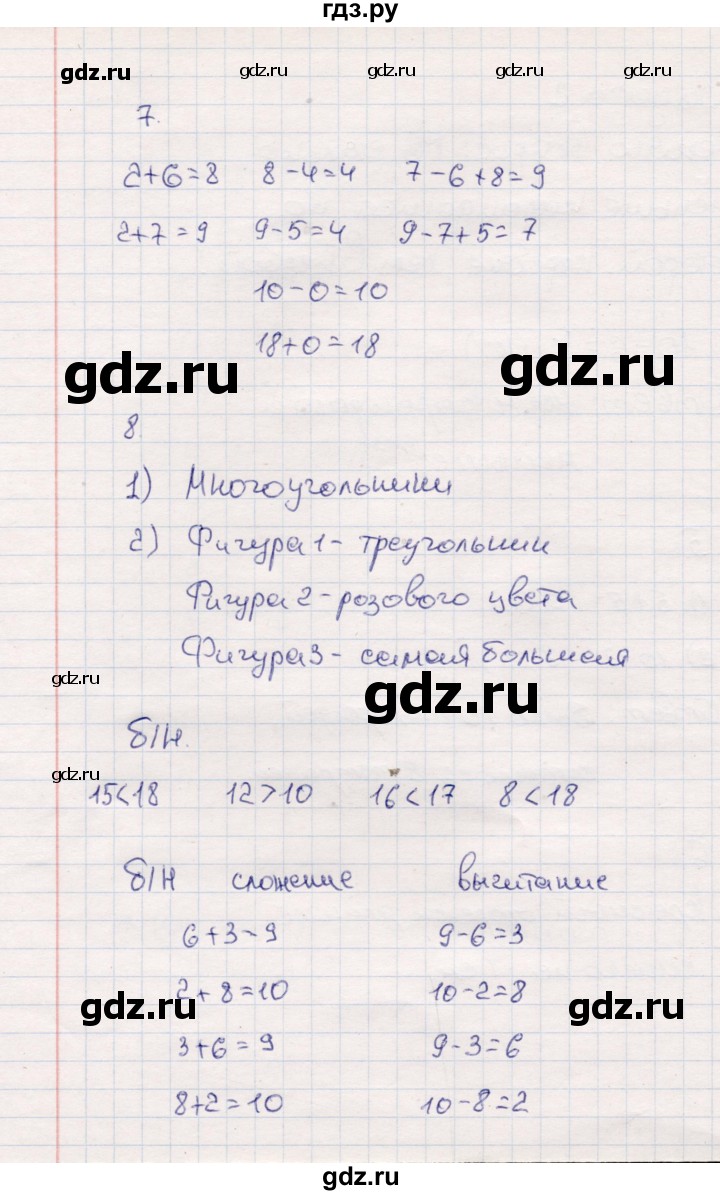 гдз.ру
gdz.ru gdz.ru gdz.ru gdz.ru gdz.ru
7.
2+6=8 8-4=4 7-6+8=9
2+7=9 9-5=4 9-7+5=7
10-0=10
18+0=18
gdz.ru gdz.ru
8.
1) Многоугольники
2) Фигура 1 - треугольник
Фигура 2 - розового цвета
Фигура 3 - самая большая
gdz.ru gdz.ru
б/н.
gdz.ru
15<18 12>10 16<17 8<18
б/н сложение вычитание
6+3=9 9-6=3
2+8=10 10-2=8
gdz.ru gdz.ru
3+6=9 9-3=6
8+2=10 10-8=2
gdz.ru